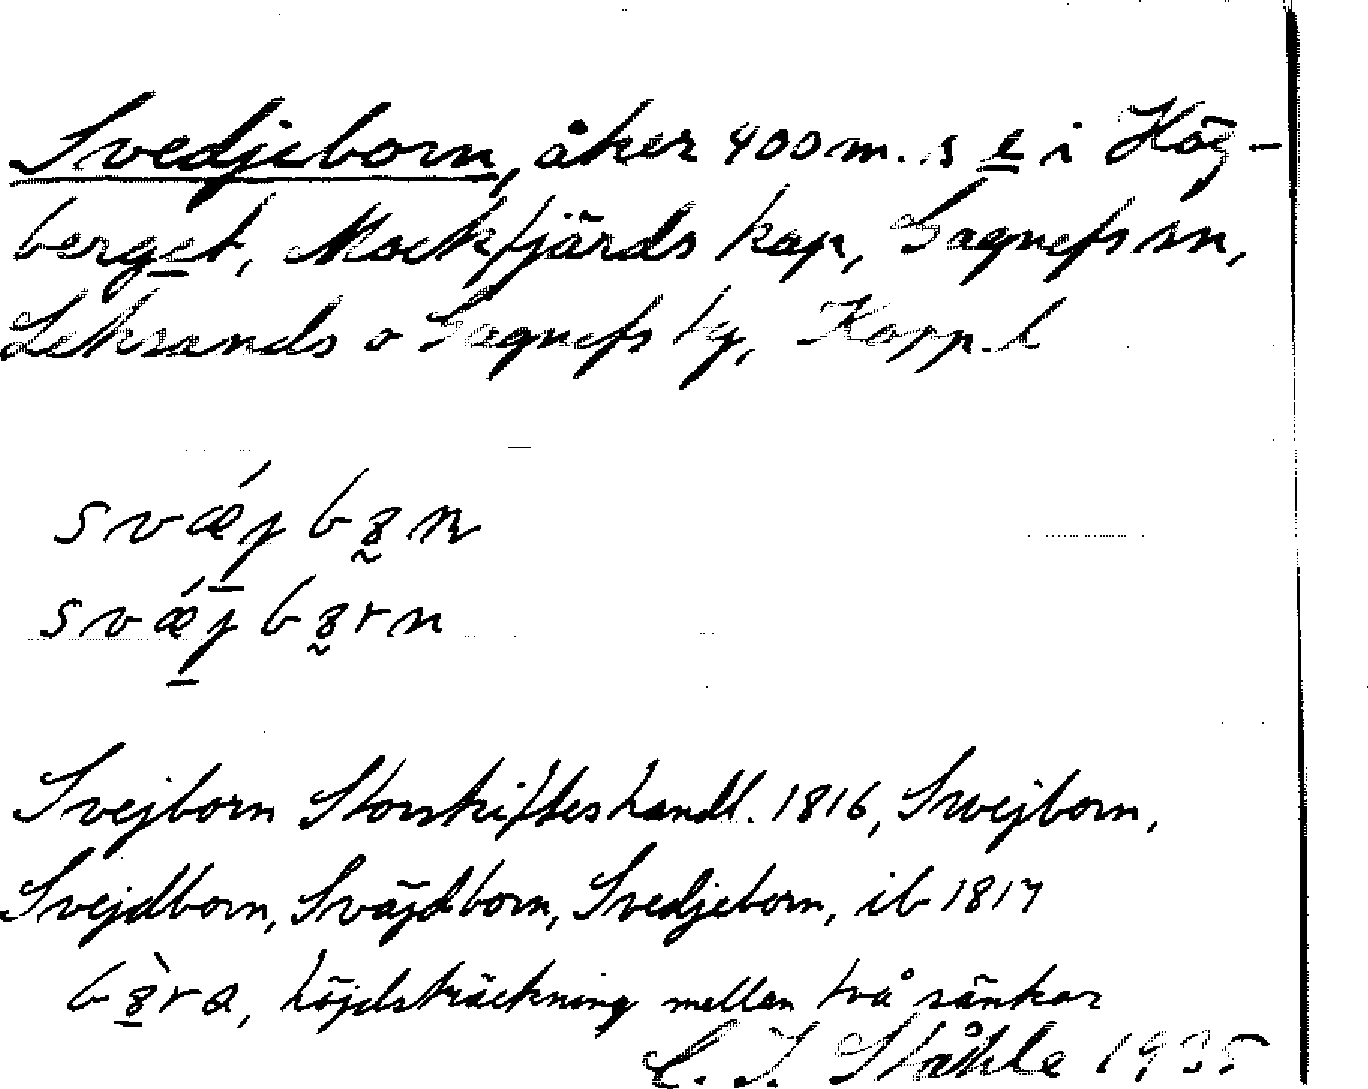 Svedjeborn, åker 400 m. s e i Hög-
berget, Mockfjärds kap, Gagnefs sn,
Leksands o Gagnefs tg, Kopp. l
Svejborn Storskifteshandl. 1816, Swejborn,
Svejdborn, Sväjdborn, Svedjeborn, ib 1817
höjdsträckning mellan två sänkor
C. I. Ståhle 1935